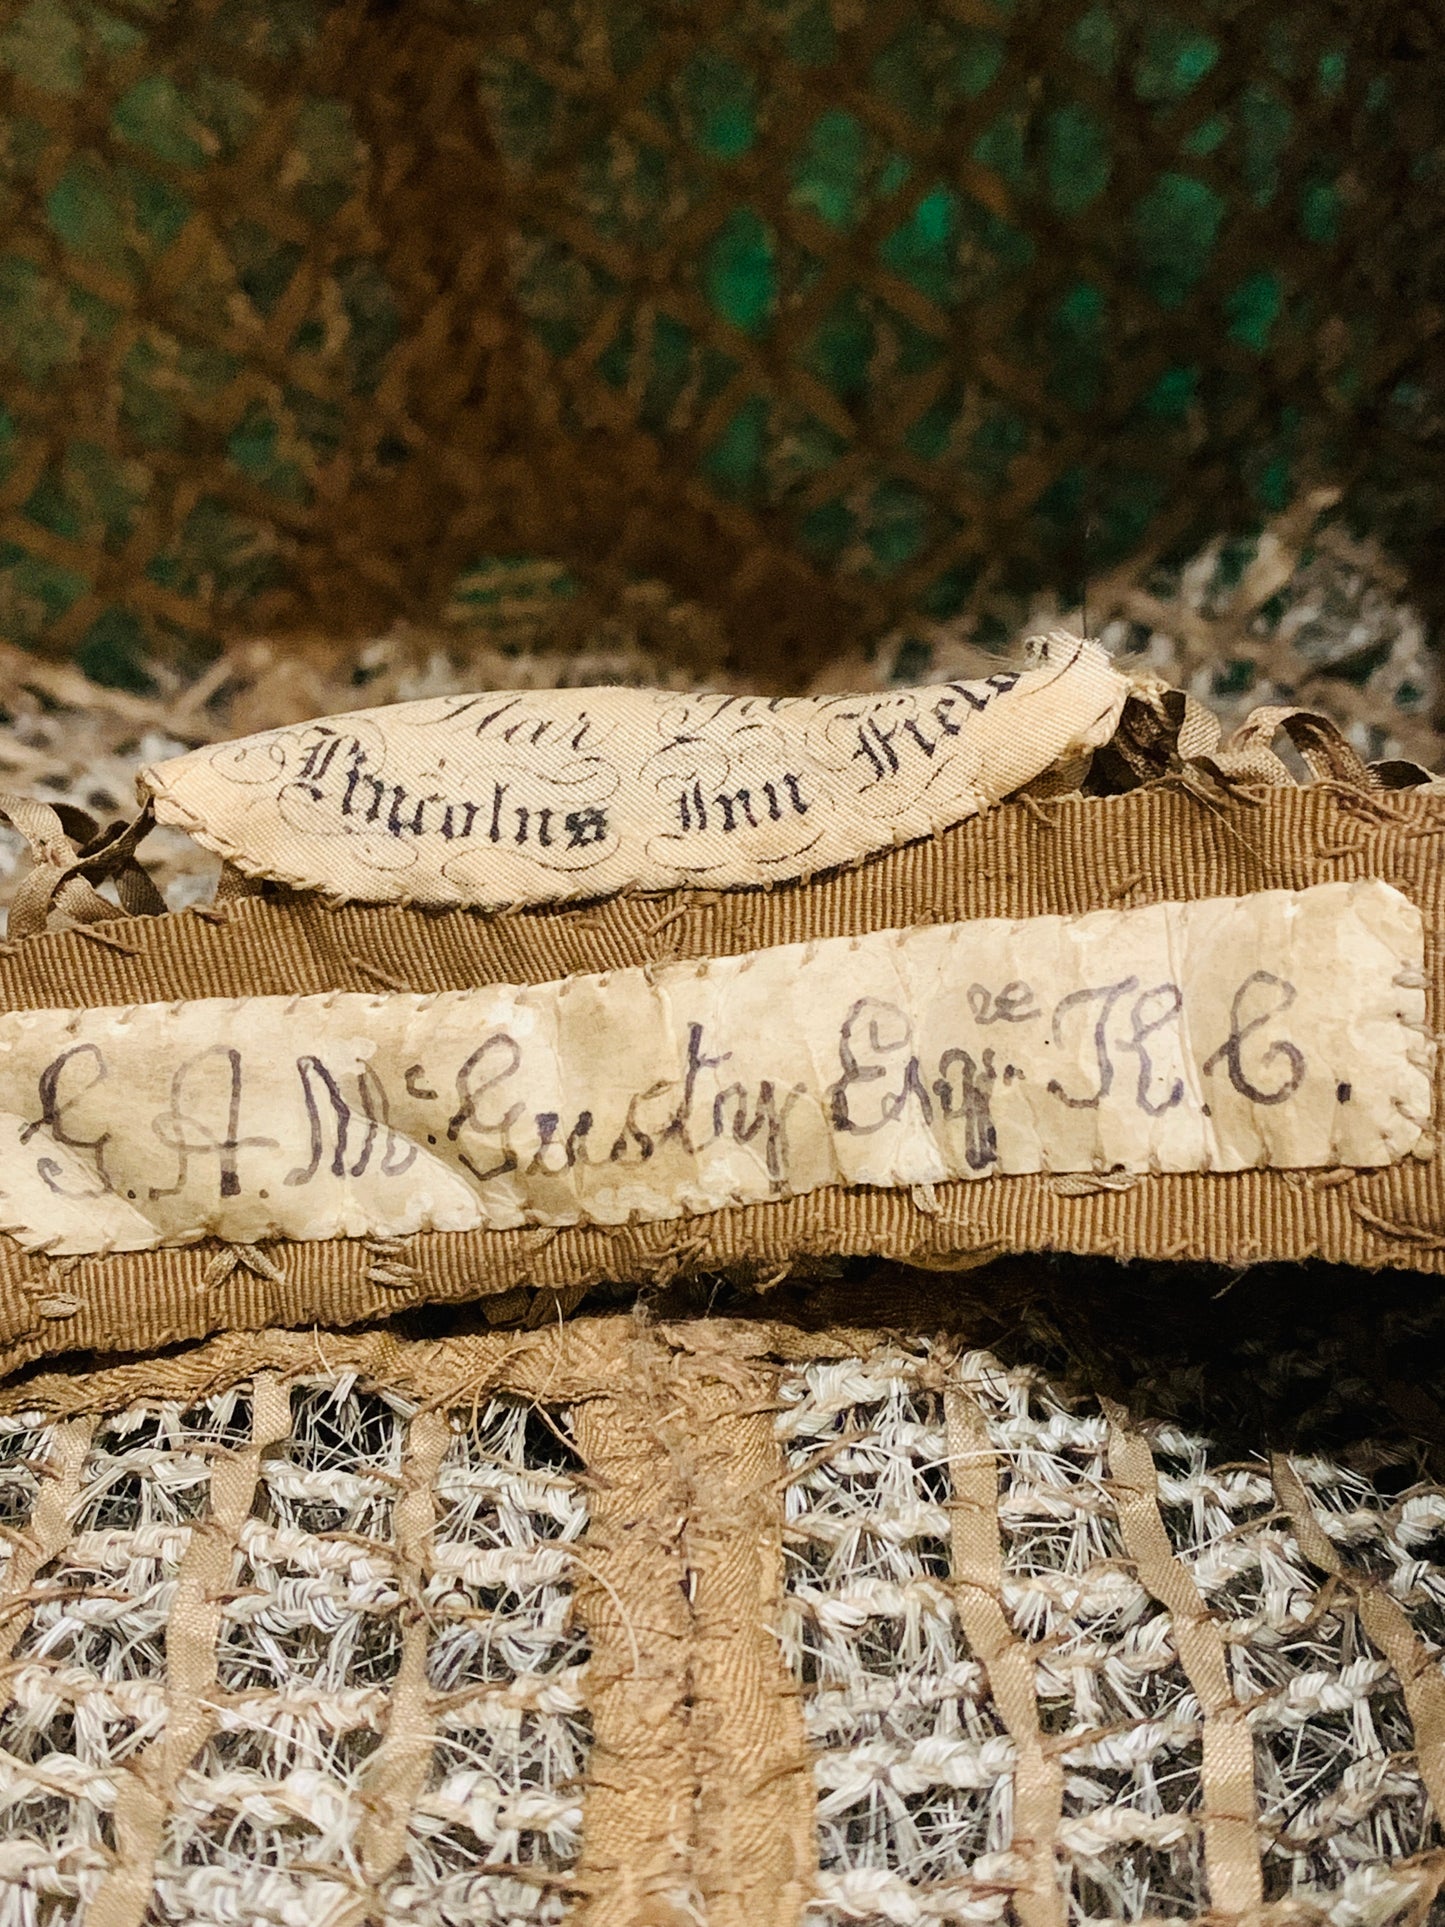 Star
Lincolns Inn Fields
G.A. McGusty Esqre K.C.